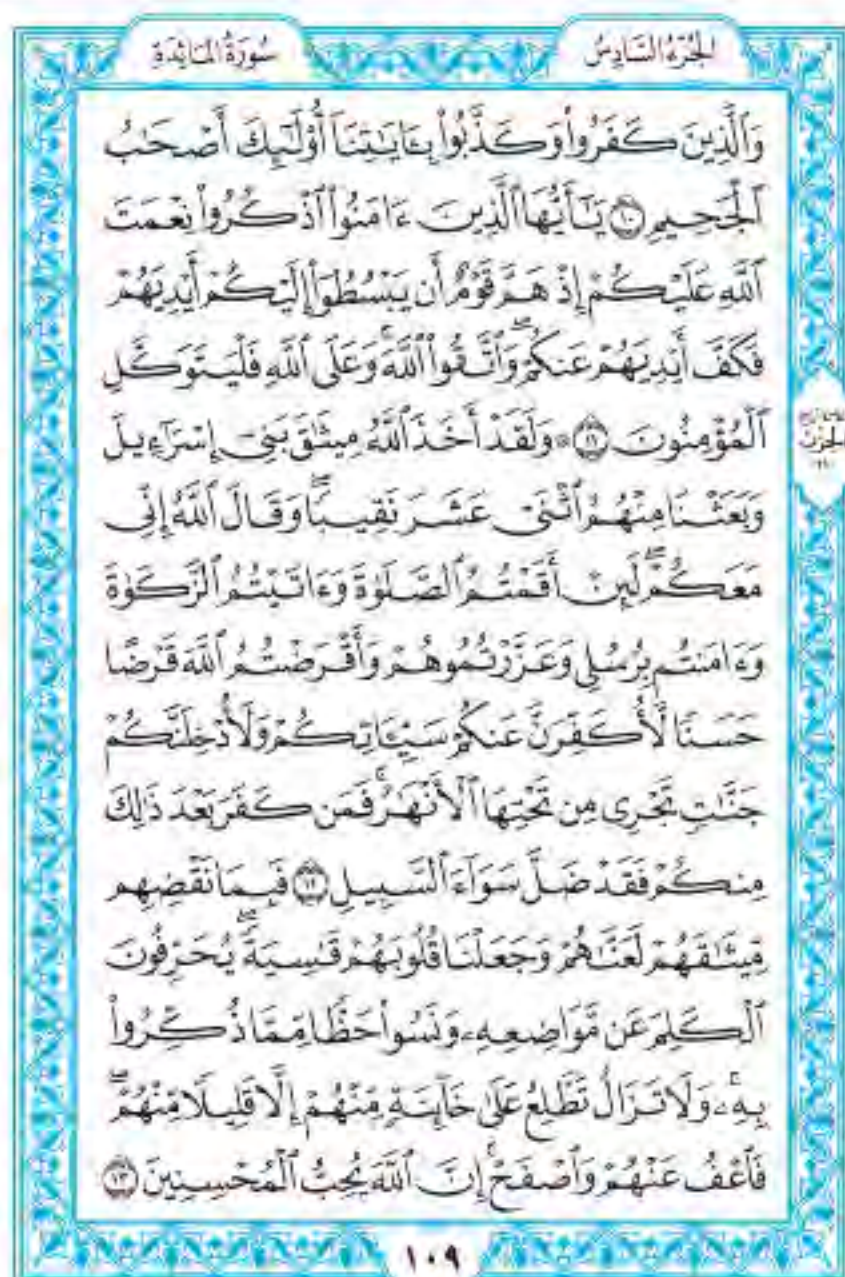 سُورَةُ المَائدَةِ
الجُزْءُ السَّادِسُ
وَٱلَّذِينَ كَفَرُواْ وَكَذَّبُواْ بِـَٔايَٰتِنَآ أُوْلَٰٓئِكَ أَصۡحَٰبُ
ٱلۡجَحِيمِ ١٠ يَٰٓأَيُّهَا ٱلَّذِينَ ءَامَنُواْ ٱذۡكُرُواْ نِعۡمَتَ
ٱللَّهِ عَلَيۡكُمۡ إِذۡ هَمَّ قَوۡمٌ أَن يَبۡسُطُوٓاْ إِلَيۡكُمۡ أَيۡدِيَهُمۡ
فَكَفَّ أَيۡدِيَهُمۡ عَنكُمۡۖ وَٱتَّقُواْ ٱللَّهَۚ وَعَلَى ٱللَّهِ فَلۡيَتَوَكَّلِ
ٱلۡمُؤۡمِنُونَ ١١ ۞ وَلَقَدۡ أَخَذَ ٱللَّهُ مِيثَٰقَ بَنِيٓ إِسۡرَٰٓءِيلَ
وَبَعَثۡنَا مِنۡهُمُ ٱثۡنَيۡ عَشَرَ نَقِيبٗاۖ وَقَالَ ٱللَّهُ إِنِّي
مَعَكُمۡۖ لَئِنۡ أَقَمۡتُمُ ٱلصَّلَوٰةَ وَءَاتَيۡتُمُ ٱلزَّكَوٰةَ
وَءَامَنتُم بِرُسُلِي وَعَزَّرۡتُمُوهُمۡ وَأَقۡرَضۡتُمُ ٱللَّهَ قَرۡضًا
حَسَنٗا لَّأُكَفِّرَنَّ عَنكُمۡ سَيِّـَٔاتِكُمۡ وَلَأُدۡخِلَنَّكُمۡ
جَنَّٰتٖ تَجۡرِي مِن تَحۡتِهَا ٱلۡأَنۡهَٰرُۚ فَمَن كَفَرَ بَعۡدَ ذَٰلِكَ
مِنكُمۡ فَقَدۡ ضَلَّ سَوَآءَ ٱلسَّبِيلِ ١٢ فَبِمَا نَقۡضِهِم
مِّيثَٰقَهُمۡ لَعَنَّٰهُمۡ وَجَعَلۡنَا قُلُوبَهُمۡ قَٰسِيَةٗۖ يُحَرِّفُونَ
ٱلۡكَلِمَ عَن مَّوَاضِعِهِۦ وَنَسُواْ حَظّٗا مِّمَّا ذُكِّرُواْ
بِهِۦۚ وَلَا تَزَالُ تَطَّلِعُ عَلَىٰ خَآئِنَةٖ مِّنۡهُمۡ إِلَّا قَلِيلٗا مِّنۡهُمۡۖ
فَٱعۡفُ عَنۡهُمۡ وَٱصۡفَحۡۚ إِنَّ ٱللَّهَ يُحِبُّ ٱلۡمُحۡسِنِينَ ١٣
الحِزْبُ
١٠٩